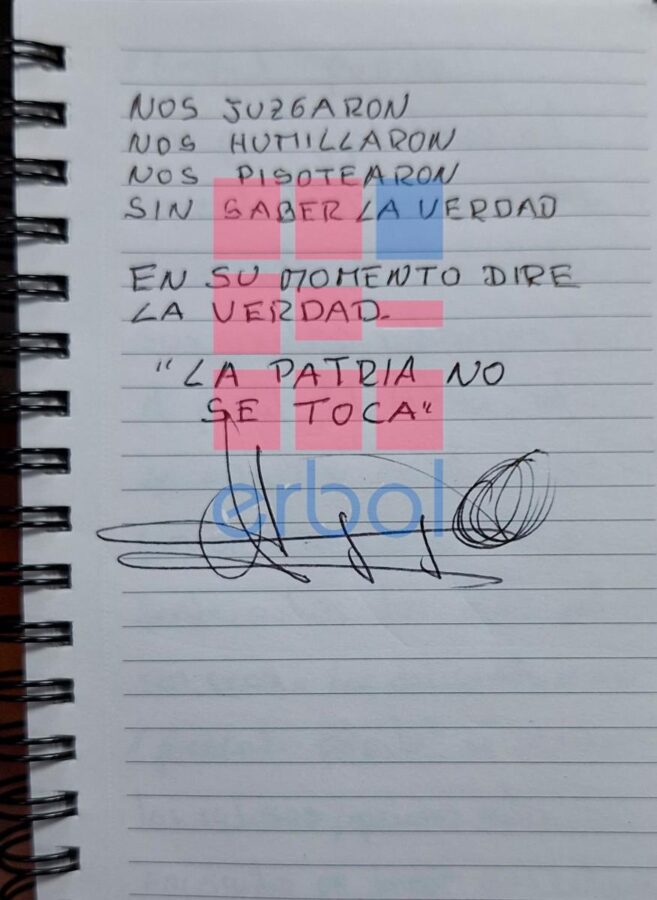 NOS JUZGARON
NOS HUMILLARON
NOS PISOTEARON
SIN SABER LA VERDAD
EN SU MOMENTO DIRE
LA VERDAD.
"LA PATRIA NO
SE TOCA"
erbol